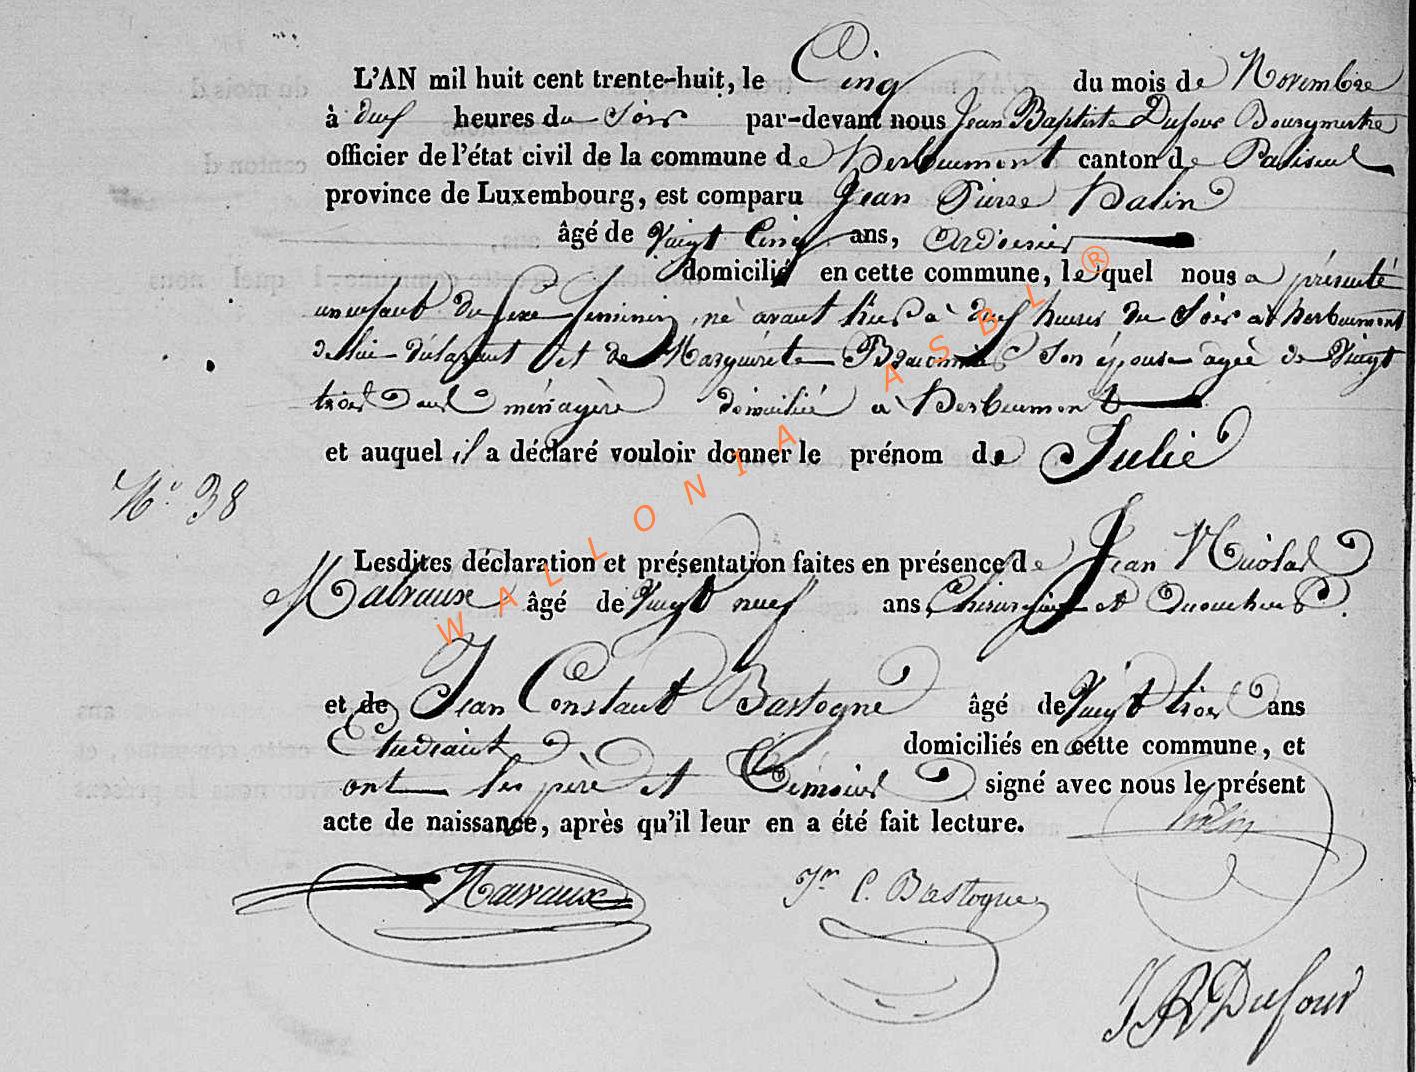 L'AN mil huit cent trente-huit, le Cinq du mois de Novembre
à deux heures du Soir par-devant nous Jean Baptiste Dufour Bourgmestre
officier de l'état civil de la commune de Herbeumont canton de Paliseul
province de Luxembourg, est comparu Jean Pierre Halin
âgé de Vingt Cinq ans, Ardoisier
domicilié en cette commune, lequel nous a présenté
un enfant du sexe feminin, né avant hier à heures du Soir à herbeumont
de lui déclarant et de Marguerite son épouse agée de Vingt
trois ans ménagère domiciliée à Herbeumont
et auquel il a déclaré vouloir donner le prénom de Julie
N° 38
Lesdites déclaration et présentation faites en présence de Jean Nicolas
Malvaux âgé de Vingt neuf ans, Chirurgien et accoucheur
et de Jean Constant Bastogne âgé de Vingt trois ans
Etudiant domiciliés en cette commune, et
ont les père et témoins signé avec nous le présent
acte de naissance, après qu'il leur en a été fait lecture.
Halin
Malvaux
Jn C. Bastogne
J B Dufour
WALLONIA ASBL ®